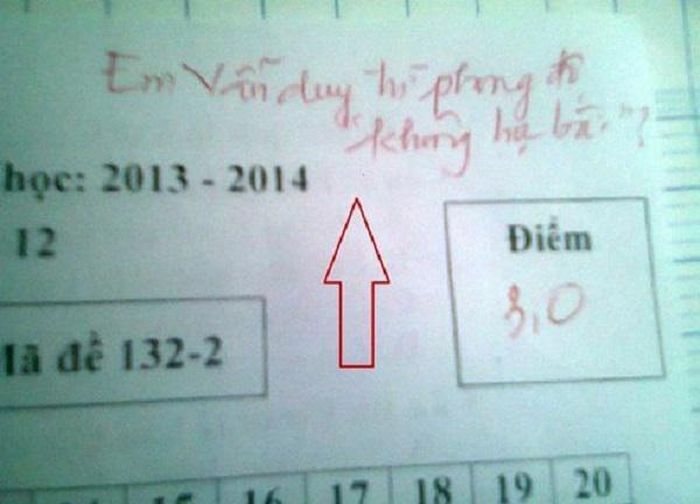 Em Vẫn duy trì phong độ
"khủng" hả bà."?
học: 2013 - 2014
12
Điểm
3,0
Mã đề 132-2
15 16 17 18 19 20